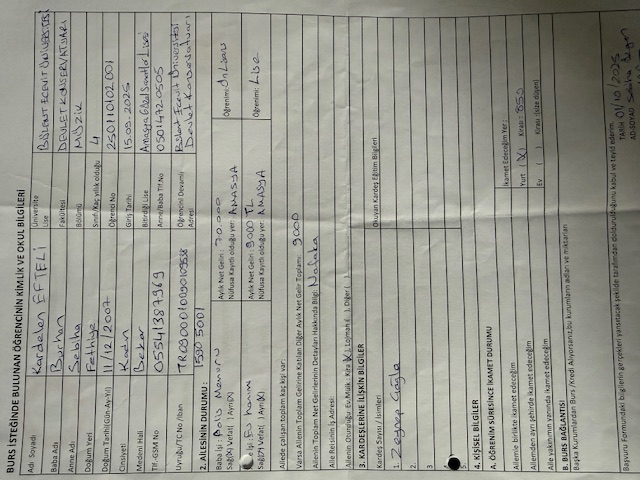 BURS İSTEĞİNDE BULUNAN ÖĞRENCİNİN KİMLİK VE OKUL BİLGİLERİ
Adı Soyadı Kardelen EFTELİ Üniversite BÜLENT ECEVİT ÜNİVERSİTESİ
Lise
Baba Adı Burhan Fakültesi DEVLET KONSERVATUARI
Anne Adı Sebiha Bölümü MÜZİK
Doğum Yeri Fethiye Sınıf/Kaç yıllık olduğu 4
Doğum Tarihi(Gün-Ay-Yıl) 11/12/2007 Öğrenci No
Cinsiyeti Kadın Giriş Tarihi 15.09.2025
Medeni Hali Bekar Bitirdiği Lise Amasya Güzel Sanatlar Lisesi
Tlf.-GSM No Anne/Baba Tlf.No 05014720505
Uyruğu/TC No /İban Öğrencinin Devamlı Adresi Bülent Ecevit Üniversitesi Devlet Konservatuarı
2. AİLESİNİN DURUMU :
Baba İşi Aylık Net Geliri : 70.000 Öğrenimi: Ön Lisans
Nüfusa Kayıtlı olduğu yer: AMASYA
Ev hanımı Aylık Net Geliri : 9000 TL Öğrenimi: Lise
Nüfusa Kayıtlı olduğu yer: AMASYA
Ailede çalışan toplam kaç kişi var:
Varsa Ailenin Toplam Gelirine Katılan Diğer Aylık Net Gelir Toplamı: 9000
Ailenin Toplam Net Gelirlerinin Detayları Hakkında Bilgi: Nafaka
Aile Reisinin İş Adresi:
3. KARDEŞLERİNE İLİŞKİN BİLGİLER
Kardeş Sayısı / İsimleri Okuyan Kardeş Eğitim Bilgileri
1. Zeynep Çağla
2.
3
5.
4. KİŞİSEL BİLGİLER
A. ÖĞRENİM SÜRESİNCE İKAMET DURUMU
Ailemle birlikte ikamet edeceğim İkamet Edeceğim Yer :
Ailemden ayrı şehirde ikamet edeceğim Yurt ( X ) Kirası : 850
Aile yakınımın yanında ikamet edeceğim Ev ( ) Kirası
B. BURS BAĞLANTISI
Başka Kurumlardan Burs /Kredi Alıyorsanız,bu kurumların adları ve miktarları
Başvuru Formundaki bilgilerin gerçekleri yansıtacak şekilde tarafımdan doldurulduğunu kabul ve teyit ederim.
TARİH 01/10/2025
ADSOYAD